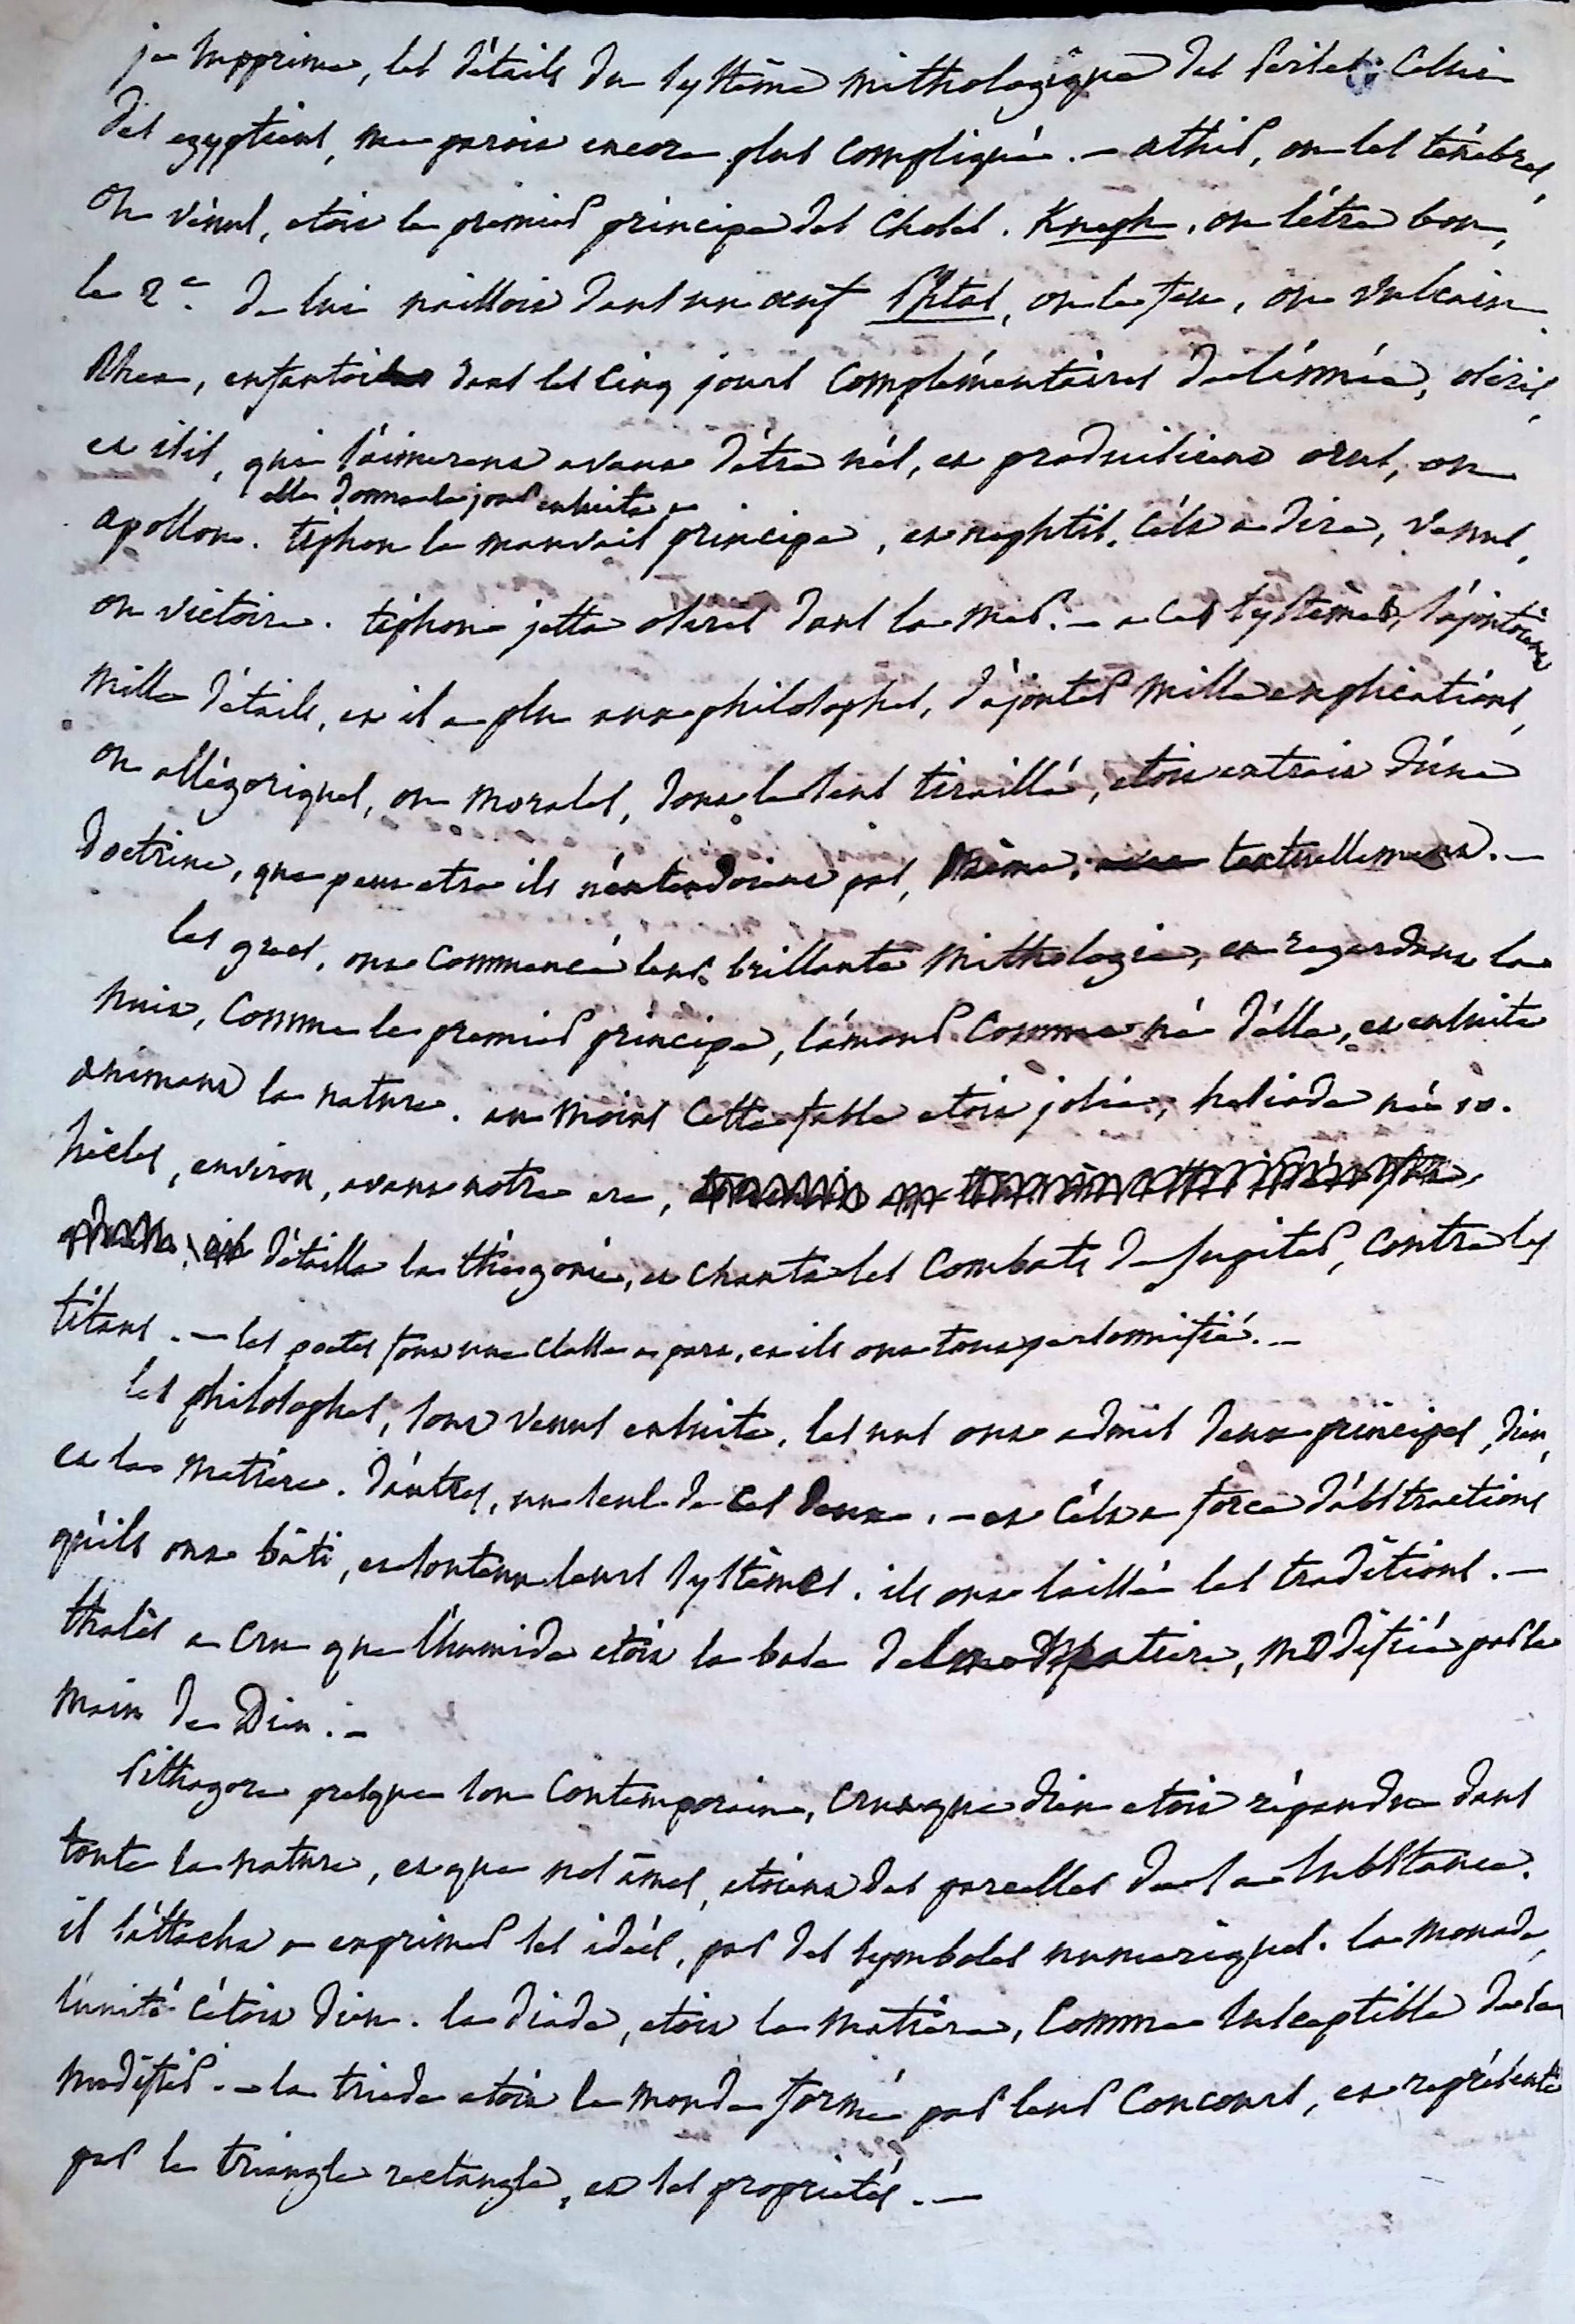 je supprime, les détails du systême mithologique des Perses. Celui
des egyptiens, me parois encore plus compliqué. — athis, ou les ténèbres,
ou vénus, etois le premier principe des choses. Kneph, ou l'être bon,
le 2e. de lui naissois dans un oeuf Phtas, ou le feu, ou Vulcain.
Rhea, enfantoit dans les cinq jours complémentaires de l'année, osiris,
et isis, qui s'aimerent avant d'être nés, et produisirent orus, ou
elle donna le jour ensuite a
apollon. tiphon le mauvais principe, et nephtis, c'est a dire, venus,
ou victoire. tiphon jetta osiris dans la mer. — a ces systêmes, s'ajoutoient
mille détails, et il a plu aux philosophes, d'ajouter mille explications,
ou allégoriques, ou morales, dont le sens tiraillé, etois extrait d'une
doctrine, que peut etre ils n'entendoient pas, même, textuellement. —
les grecs, ont commencé leur brillante mithologie, en regardant la
nuit, comme le premier principe, l'amour comme né d'elle, et ensuite
animant la nature. au moins cette fable etois jolie, hesiode né 10.
siècles, environ, avant notre ere,
détailla la théogonie, et chanta les combats de Jupiter, contre les
titans. — les poetes font une classe a part, et ils ont tout personnifié. —
les philosophes, sont venus ensuite, les uns ont admis deux principes, dieu,
et la matière. d'autres, un seul de ces deux. — et c'est a force d'abstractions
qu'ils ont bâti, et soutenu leurs systèmes. ils ont laissé les traditions. —
thalès a cru que l'humide etois la base de la matiere, modifiée par la
main de Dieu. —
Pithagore presque son contemporain, crut que dieu etois répandu dans
toute la nature, et que nos âmes, etoient des parcelles de sa substance.
il s'attacha a exprimer ses idées, par des symboles numeriques. la monade,
l'unité c'étois dieu. la diade, etois la matière, comme susceptible de se
modifier. — la triade etois le monde formé par leur concours, et représenté
par le triangle rectangle, et ses propriétés. —